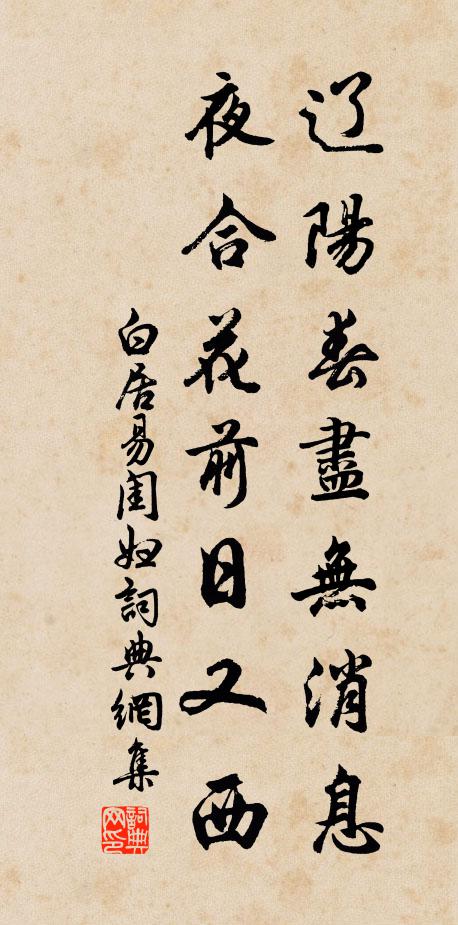 辽陽春盡無消息
夜合花前日又西
白居易閨婦詞典網集
詞典網印